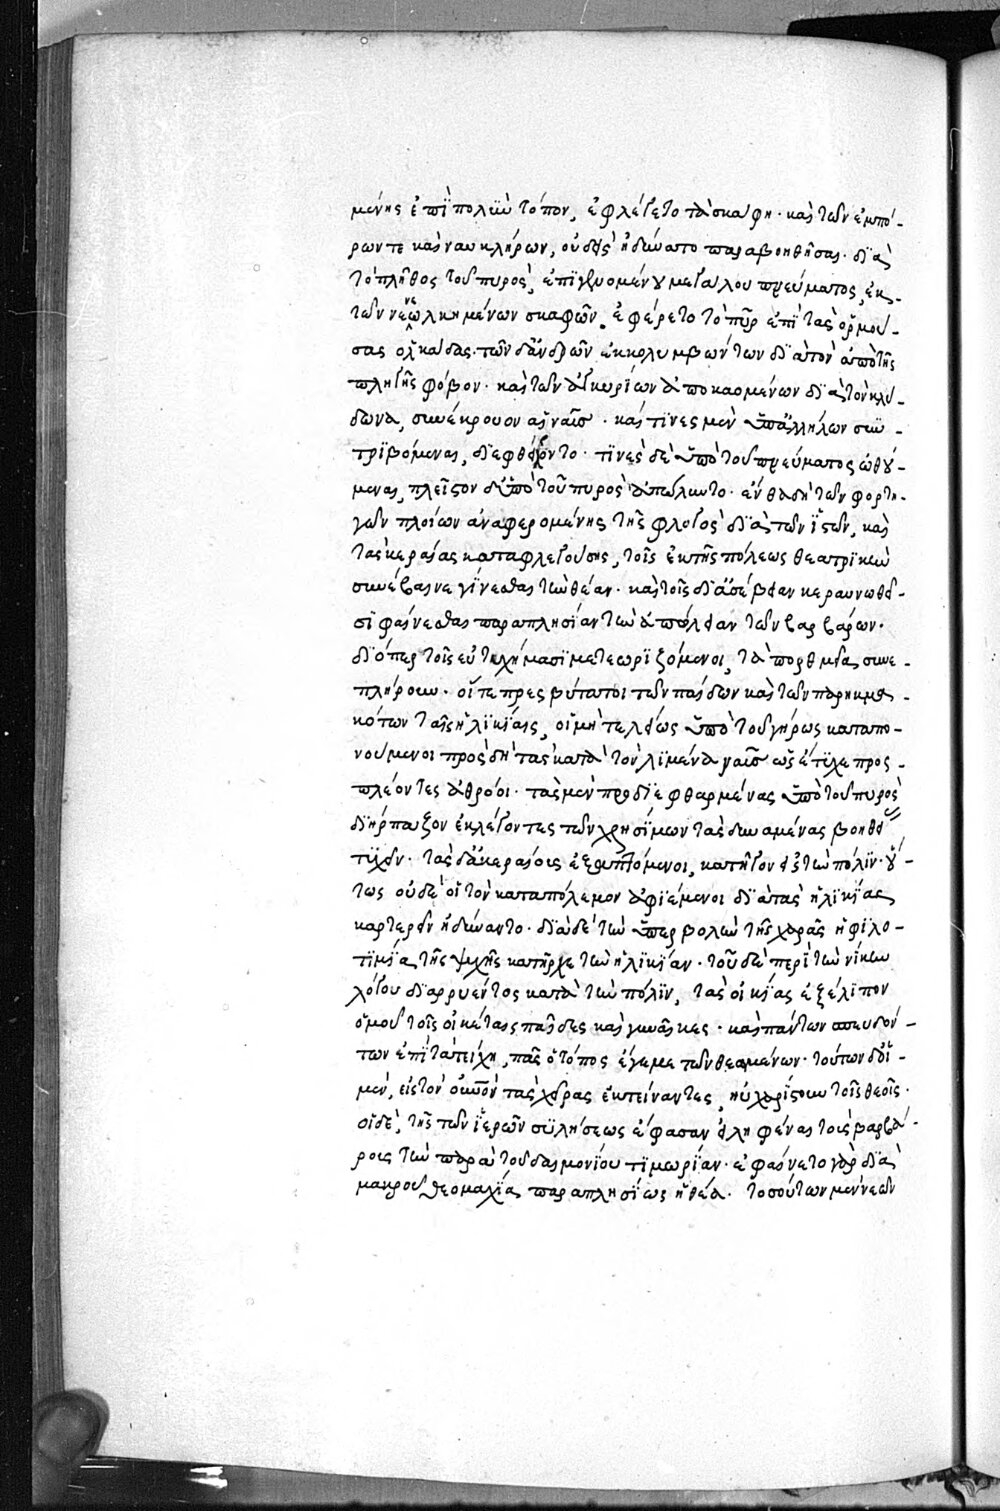 μένης ἐπὶ πολὺν τόπον, ἐφλέγετο τὰ σκάφη· καὶ τῶν ἐμπό-
ρων τε καὶ ναυκλήρων, οὐδεὶς ἠδύνατο παραβοηθῆσαι· διὰ
τὸ πλῆθος τοῦ πυρὸς, ἐπιγενομένου μεγάλου πνεύματος, ἐκ
τῶν νενεωλκημένων σκαφῶν. ἐφέρετο τὸ πῦρ ἐπὶ τὰς ὁρμού-
σας ὁλκάδας· τῶν δ' ἀνδρῶν ἐκκολυμβώντων διὰ τὸν ἀπὸ τῆς
πληγῆς φόβον· καὶ τῶν ἀγκυρίων ἀποκαομένων διὰ τὸν κλύ-
δωνα, συνέκρουον αἱ ναῦς· καὶ τινὲς μὲν ὑπ' ἀλλήλων συν-
τριβόμεναι, διεφθείροντο· τινὲς δὲ ὑπὸ τοῦ πνεύματος ὠθού-
μεναι, πλεῖστον δ' ὑπὸ τοῦ πυρὸς ἀπώλυντο· ἔνθα δὴ τῶν φορτη-
γῶν πλοίων ἀναφερομένης τῆς φλογὸς διὰ τῶν ἱστῶν, καὶ
τὰς κεραίας καταφλεγούσης, τοῖς ἐκ τῆς πόλεως θεατρικὴν
συνέβαινε γίνεσθαι τὴν θέαν· καὶ τοῖς δι' ἀσέβειαν κεραυνωθεῖ-
σι φαίνεσθαι παραπλησίαν τὴν ἀπώλειαν τῶν βαρβάρων·
διόπερ τοῖς εὐτυχήμασι μετεωριζόμενοι, τὰ πορθμεῖα συνε-
πλήρουν· οἵ τε πρεσβύτατοι τῶν παίδων καὶ τῶν παρηκμα-
κότων ταῖς ἡλικίαις, οἱ μὴ τελείως ὑπὸ τοῦ γήρως καταπο-
νούμενοι πρὸς δὴ τὰς κατὰ τὸν λιμένα ναῦς ὡς ἔτυχε προσ-
πλέοντες ἀθρόοι· τὰς μὲν προδιεφθαρμένας ὑπὸ τοῦ πυρὸς
διήρπαζον ἐκλέγοντες τῶν χρησίμων τὰς δυναμένας βοηθεί-
τυχεῖν· τὰς δ' ἀκεραίους ἐξαπτόμενοι, κατῆγον εἰς τὴν πόλιν· οὕ-
τως οὐδὲ οἱ τὸν κατὰ πόλεμον ἀφιέμενοι διὰ τὰς ἡλικίας
καρτερεῖν ἠδύναντο· διὰ δὲ τὴν ὑπερβολὴν τῆς χαρᾶς ἡ φιλο-
τιμία τῆς ψυχῆς κατῆρχε τὴν ἡλικίαν· τοῦ δὲ περὶ τὴν νίκην
λόγου διαρρυέντος κατὰ τὴν πόλιν, τὰς οἰκίας ἐξέλιπον
ὁμοῦ τοῖς οἰκέταις παῖδες καὶ γυναῖκες· καὶ πάντων σπευδόν-
των ἐπὶ τὰ τείχη, πᾶς ὁ τόπος ἔγεμε τῶν θεαμένων· τούτων δ' οἱ
μὲν, εἰς τὸν οὐρανὸν τὰς χεῖρας ἐκτείναντες, ηὐχαρίστουν τοῖς θεοῖς·
οἱ δὲ, τῆς τῶν ἱερῶν συλήσεως ἔφασαν εἰληφέναι τοὺς βαρβά-
ρους τὴν παρὰ τοῦ δαιμονίου τιμωρίαν· ἐφαίνετο γὰρ διὰ
μακροῦ θεομαχία παραπλησίως ἡ θέα. τοσούτων μὲν νεῶν